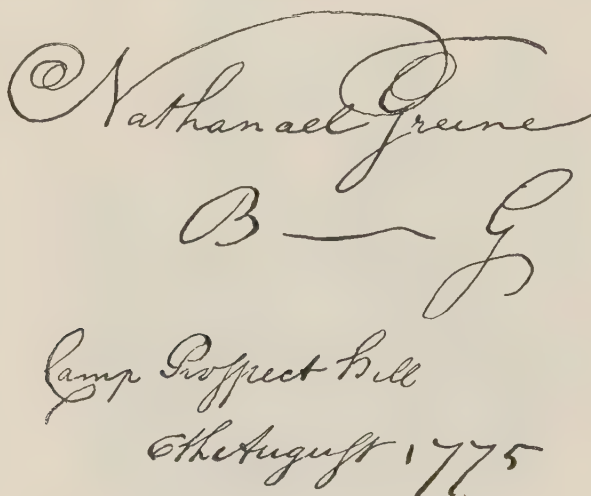 Nathanael Greene
B — G
Camp Prospect Hill
6th August 1775